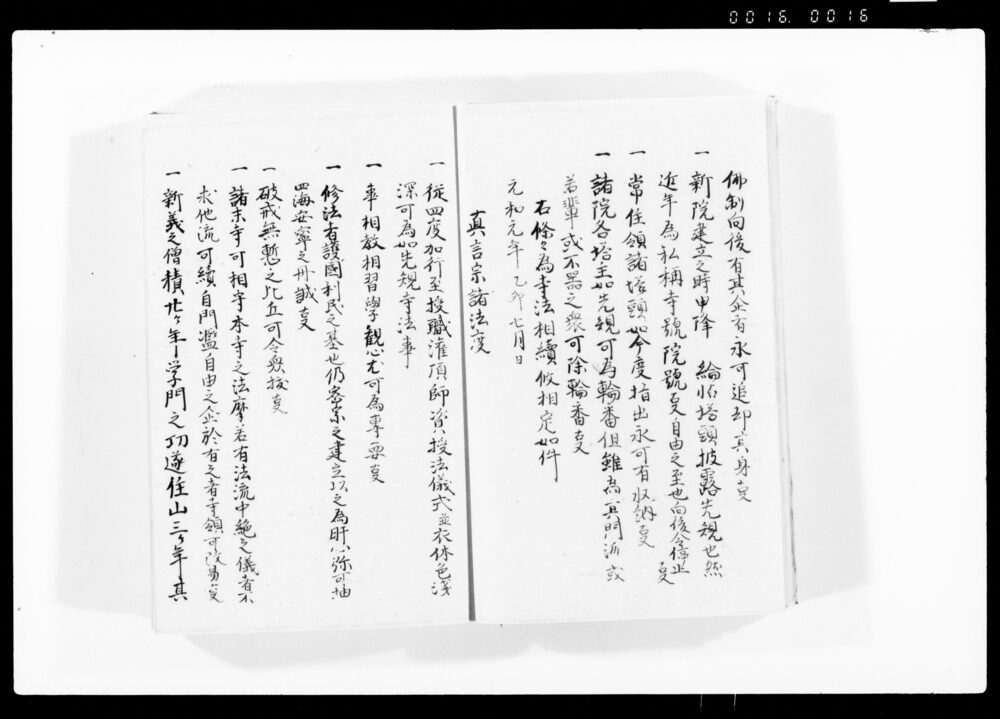 0016.0016
佛制向後有其企者永可追却其身事
一 新院建立之時申降 綸帖塔頭披露先規也然
近年為私稱寺號院號事自由之至也向後令停止事
一 常住領諸塔頭如今度指出永可有収納事
一 諸院各塔主如先規可為輪番但雖為其門派或
若輩或不器之衆可除輪番事
右條々為寺法相續攸相定如件
元和元年乙卯七月日
真言宗諸法度
一 從四度加行至授職灌頂師資授法儀式並衣体色浅
深可為如先規寺法事
一 事相教相習學觀心尤可為專要事
一 修法者護國利民之基也仍密宗之建立以之為肝心弥可抽
四海安寧之丹誠事
一 破戒無慙之比丘可令衆抜事
一 諸末寺可相守本寺之法摩若有法流中絶之儀者不
求他流可續自門濫自由之企於有之者寺領可改易事
一 新義之僧積廿ヶ年学門之功遂住山三ヶ年其